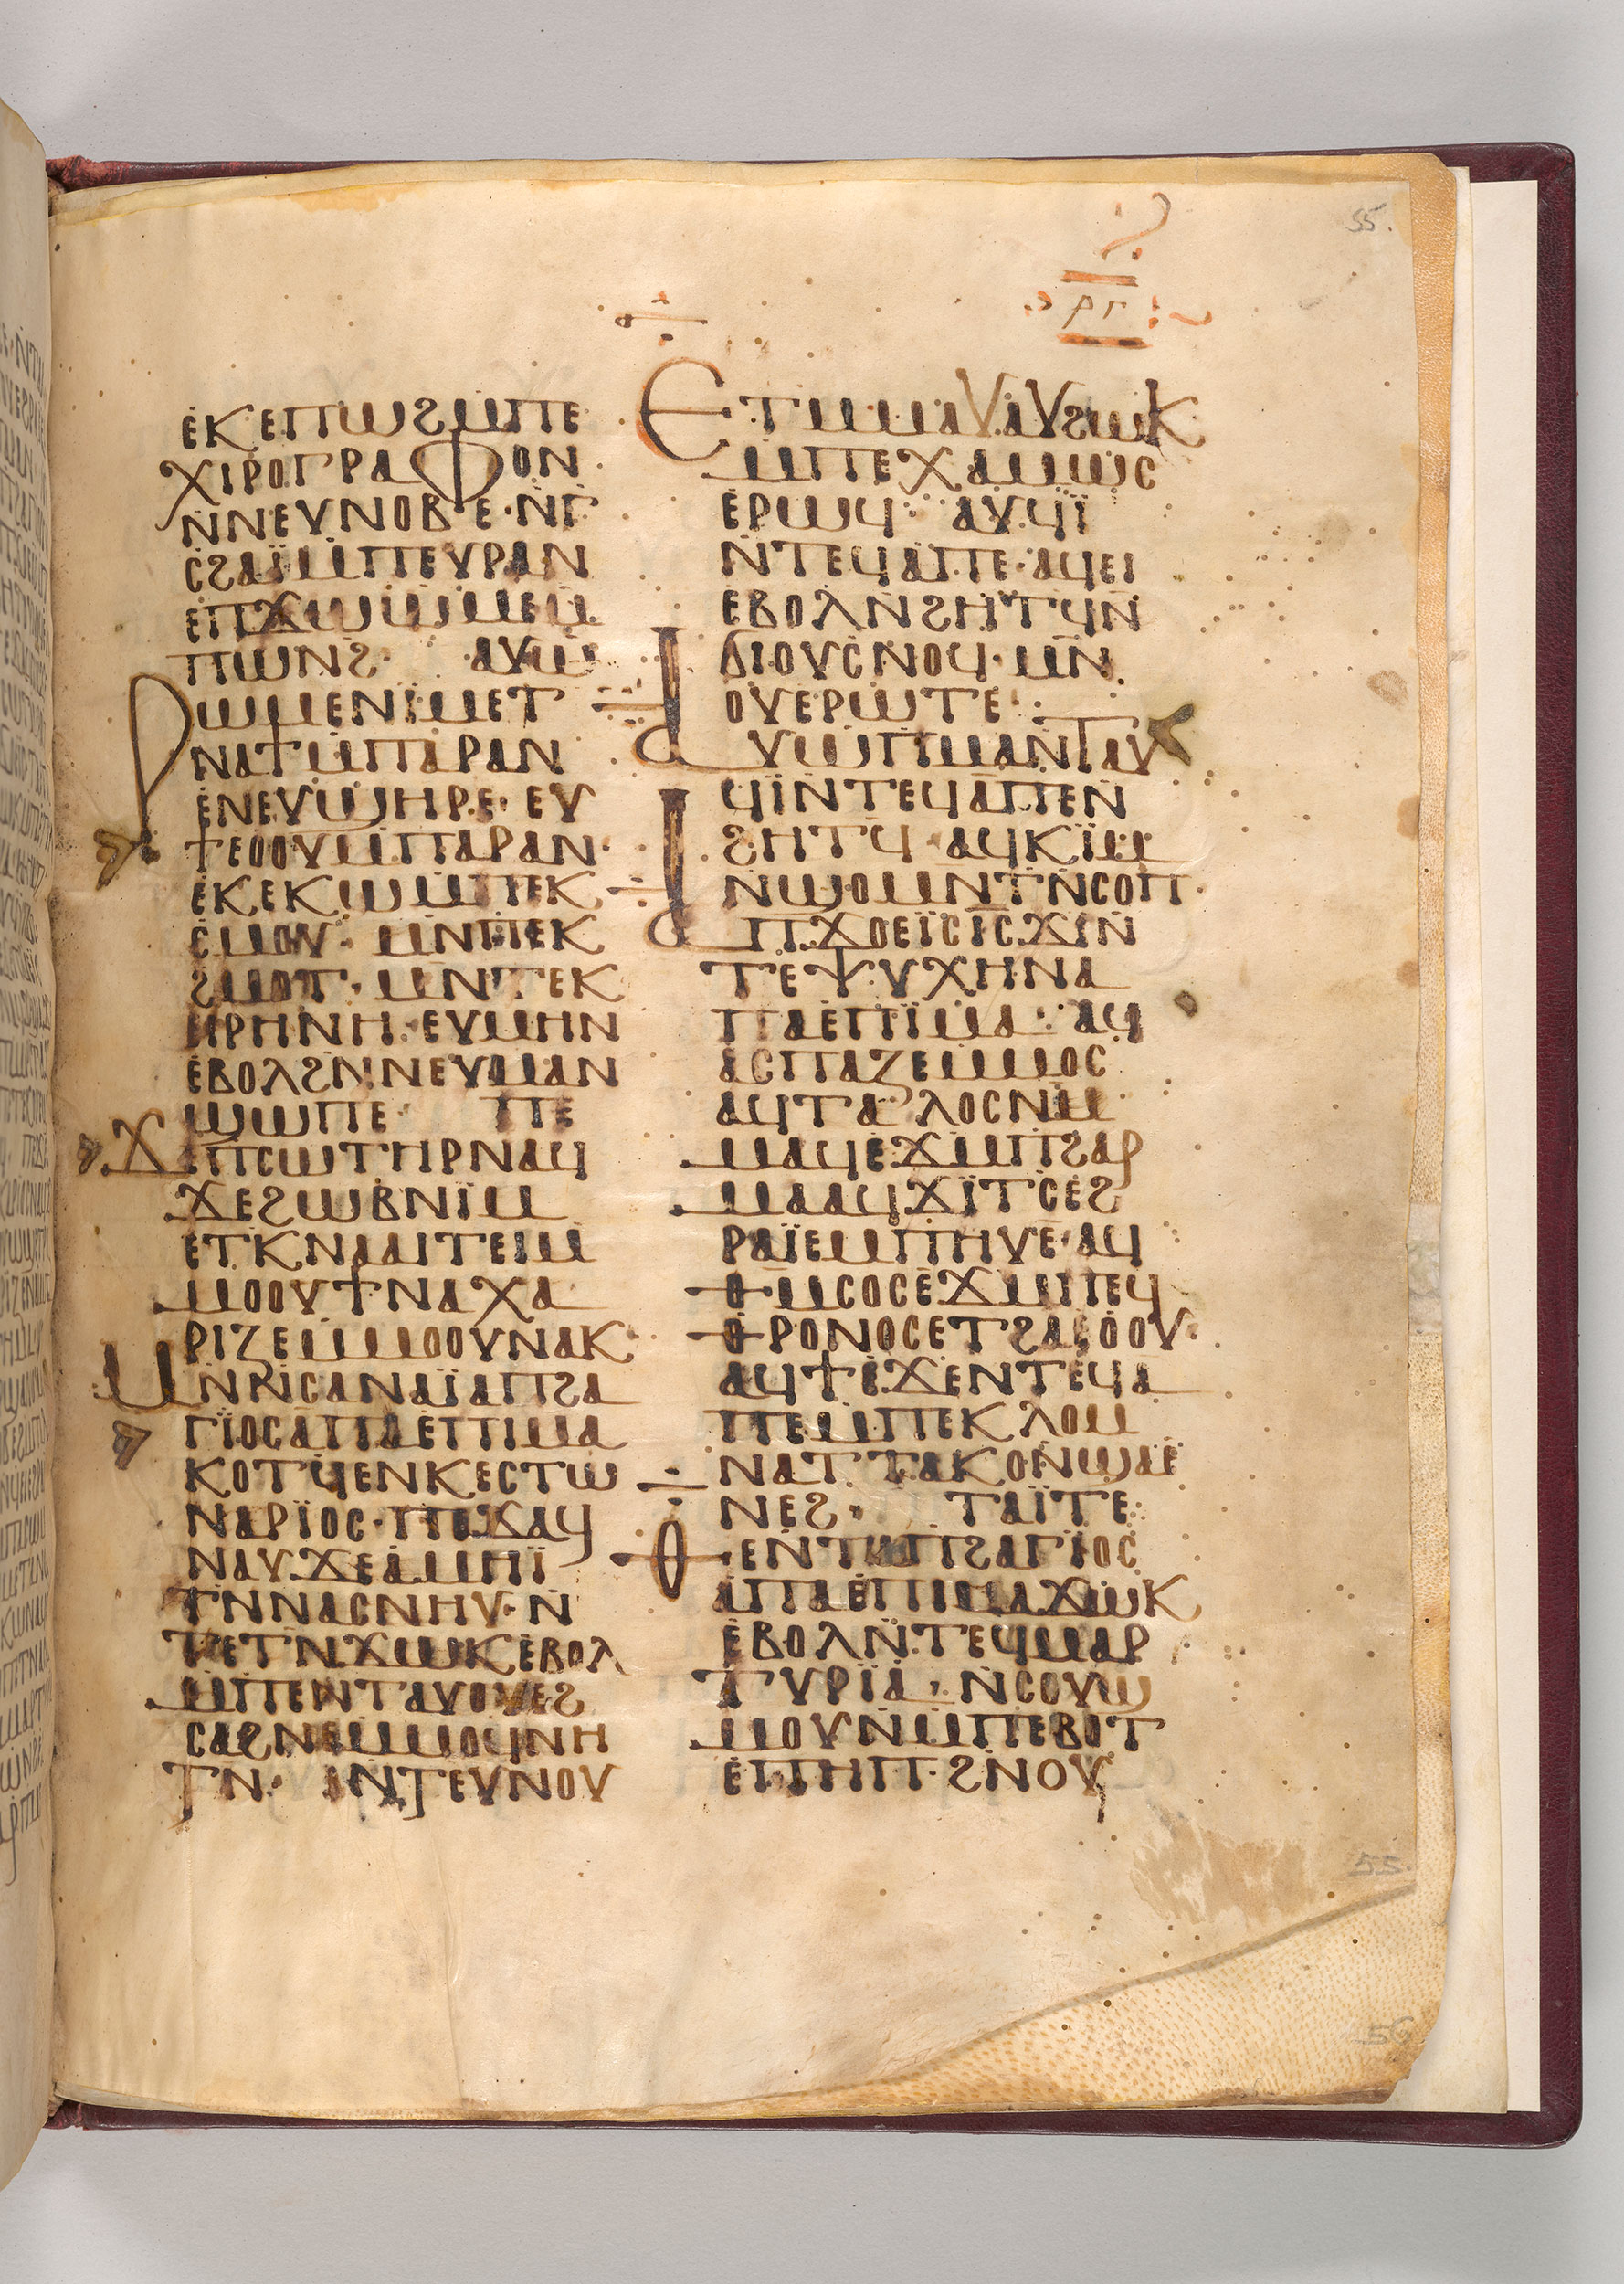 55.
ⲣⲅ
ⲉⲕⲉⲡⲱϩⲙⲡⲉ
ⲭⲓⲣⲟⲅⲣⲁⲫⲟⲛ
ⲛⲛⲉⲩⲛⲟⲃⲉ·ⲛⲅ
ⲥϩⲁⲓ̈ⲙⲡⲉⲩⲣⲁⲛ
ⲉⲡϫⲱⲱⲙⲉⲙ
ⲡⲱⲛϩ· ⲁⲩⲱ
ⲣⲱⲙⲉⲛⲓⲙⲉⲧ
ⲛⲁϯⲙⲡⲁⲣⲁⲛ
ⲉⲛⲉⲩϣⲏⲣⲉ· ⲉⲩ
ϯⲉⲟⲟⲩⲙⲡⲁⲣⲁⲛ·
ⲉⲕⲉⲕⲱⲙⲡⲉⲕ
ⲥⲙⲟⲩ· ⲙⲛⲡⲉⲕ
ϩⲙⲟⲧ· ⲙⲛⲧⲉⲕ
ⲉⲓⲣⲏⲛⲏ·ⲉⲩⲙⲏⲛ
ⲉⲃⲟⲗϩⲛⲛⲉⲩⲙⲁⲛ
ϣⲱⲡⲉ· ⲡⲉ
ϫⲉⲡⲥⲱⲧⲏⲣⲛⲁϥ
ϫⲉϩⲱⲃⲛⲓ̈ⲙ
ⲉⲧⲕⲛⲁⲁⲓⲧⲉⲓⲙ
ⲙⲟⲟⲩϯⲛⲁⲭⲁ
ⲣⲓⲍⲉⲙⲙⲟⲟⲩⲛⲁⲕ·
ⲙⲛⲛⲥⲁⲛⲁⲓ̈ⲁⲡϩⲁ
ⲅⲓ̈ⲟⲥⲁⲡⲁⲉⲡⲓⲙⲁ
ⲕⲟⲧϥⲉⲛⲕⲉⲥⲧⲱ
ⲛⲁⲣⲓ̈ⲟⲥ·ⲡⲉϫⲁϥ
ⲛⲁⲩϫⲉⲁⲙⲏⲓ̈
ⲧⲛⲛⲁⲥⲛⲏⲩ·ⲛ
ⲧⲉⲧⲛϫⲱⲕⲉⲃⲟⲗ
ⲙⲡⲉⲛⲧⲁⲩⲟⲩⲉϩ
ⲥⲁϩⲛⲉⲙⲙⲟϥⲛⲏ
ⲧⲛ· ⲛⲧⲉⲩⲛⲟⲩ
ⲉⲧⲙⲙⲁⲩⲁⲩϩⲱⲕ
ⲙⲡⲉⲭⲁⲙⲱⲥ
ⲉⲣⲱϥ: ⲁⲩϥⲓ̈
ⲛⲧⲉϥⲁⲡⲉ·ⲁϥⲉⲓ
ⲉⲃⲟⲗⲛϩⲏⲧϥⲛ
ϭⲓⲟⲩⲥⲛⲟϥ·ⲙⲛ
ⲟⲩⲉⲣⲱⲧⲉ:
ⲁⲩⲱⲡⲙⲁⲛⲧⲁⲩ
ϥⲓ̈ⲛⲧⲉϥⲁⲡⲉⲛ
ϩⲏⲧϥ ⲁϥⲕⲓ̈ⲙ
ⲛϣⲟⲙⲛⲧⲛⲥⲟⲡ·
ⲁⲡϫⲟⲉⲓ̈ⲥⲓⲥϫⲓⲛ
ⲧⲉⲯⲩⲭⲏⲛⲁ
ⲡⲁⲉⲡⲓ̈ⲙⲁ: ⲁϥ
ⲁⲥⲡⲁⲍⲉⲙⲙⲟⲥ
ⲁϥⲧⲁⲗⲟⲥⲛⲙ
ⲙⲁϥⲉϫⲙⲡϩⲁⲣ
ⲙⲁⲁϥϫⲓ̈ⲧⲥⲉϩ
ⲣⲁⲓ̈ⲉⲙⲡⲏⲩⲉ·ⲁϥ
ⲑⲙⲥⲟⲥⲉϫⲙⲡⲉϥ
ⲑⲣⲟⲛⲟⲥⲉⲧϩⲁⲉⲟⲟⲩ·
ⲁϥϯⲉϫⲉⲛⲧⲉϥⲁ
ⲡⲉⲙⲡⲉⲕⲗⲟⲙ
ⲛⲁⲧⲧⲁⲕⲟⲛϣⲁⲉ
ⲛⲉϩ· ⲧⲁⲓ̈ⲧⲉ
ⲑⲉⲛⲧⲁⲡϩⲁⲅⲓⲟⲥ
ⲁⲡⲁⲉⲡⲓⲙⲁϫⲱⲕ
ⲉⲃⲟⲗⲛⲧⲉϥⲙⲁⲣ
ⲧⲩⲣⲓ̈ⲁ·ⲛⲥⲟⲩϣ
ⲙⲟⲩⲛⲙⲡⲉⲃⲟⲧ
ⲉⲡⲏⲡ·ϩⲛⲟⲩ
55.
56